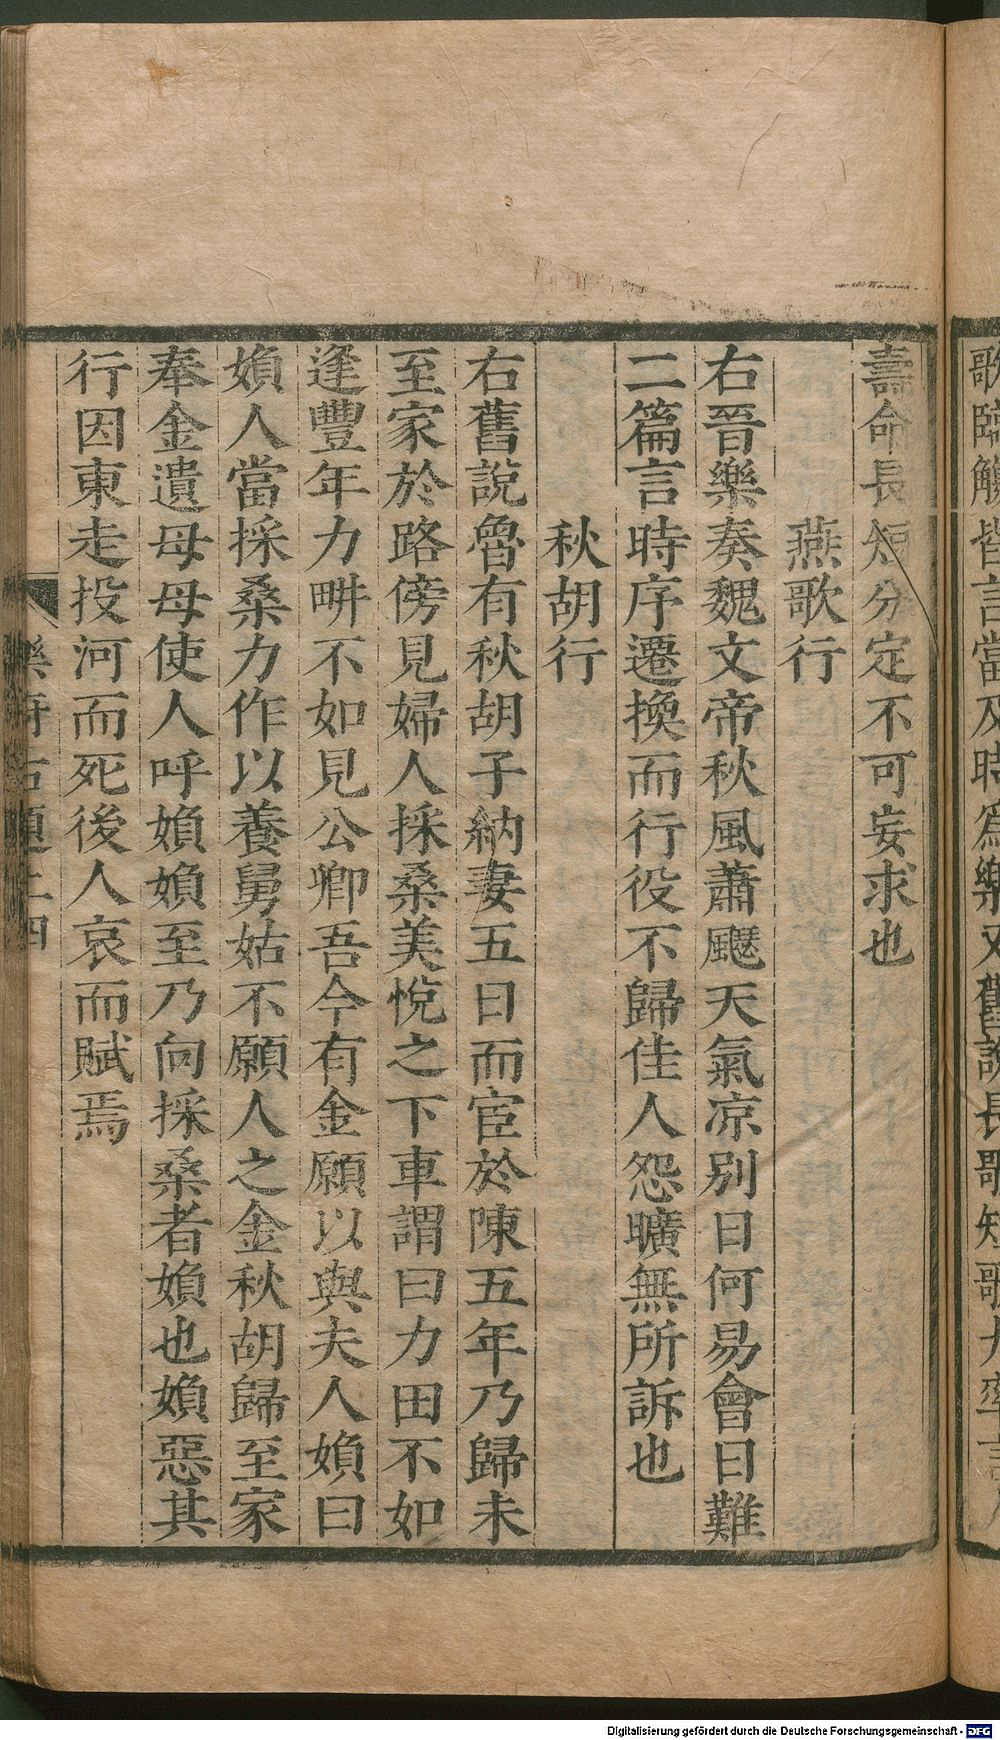 歌臨觴皆言當及時爲樂又舊說長歌短歌大率言人
壽命長短分定不可妄求也
燕歌行
右晉樂奏魏文帝秋風蕭飋天氣凉別日何易會日難
二篇言時序遷換而行役不歸佳人怨曠無所訴也
秋胡行
右舊說魯有秋胡子納妻五日而宦於陳五年乃歸未
至家於路傍見婦人採桑美悅之下車謂曰力田不如
逢豐年力畊不如見公卿吾今有金願以與夫人媍曰
媍人當採桑力作以養舅姑不願人之金秋胡歸至家
奉金遺母母使人呼媍媍至乃向採桑者媍也媍惡其
行因東走投河而死後人哀而賦焉
樂府古題上四
Digitalisierung gefördert durch die Deutsche Forschungsgemeinschaft - DFG